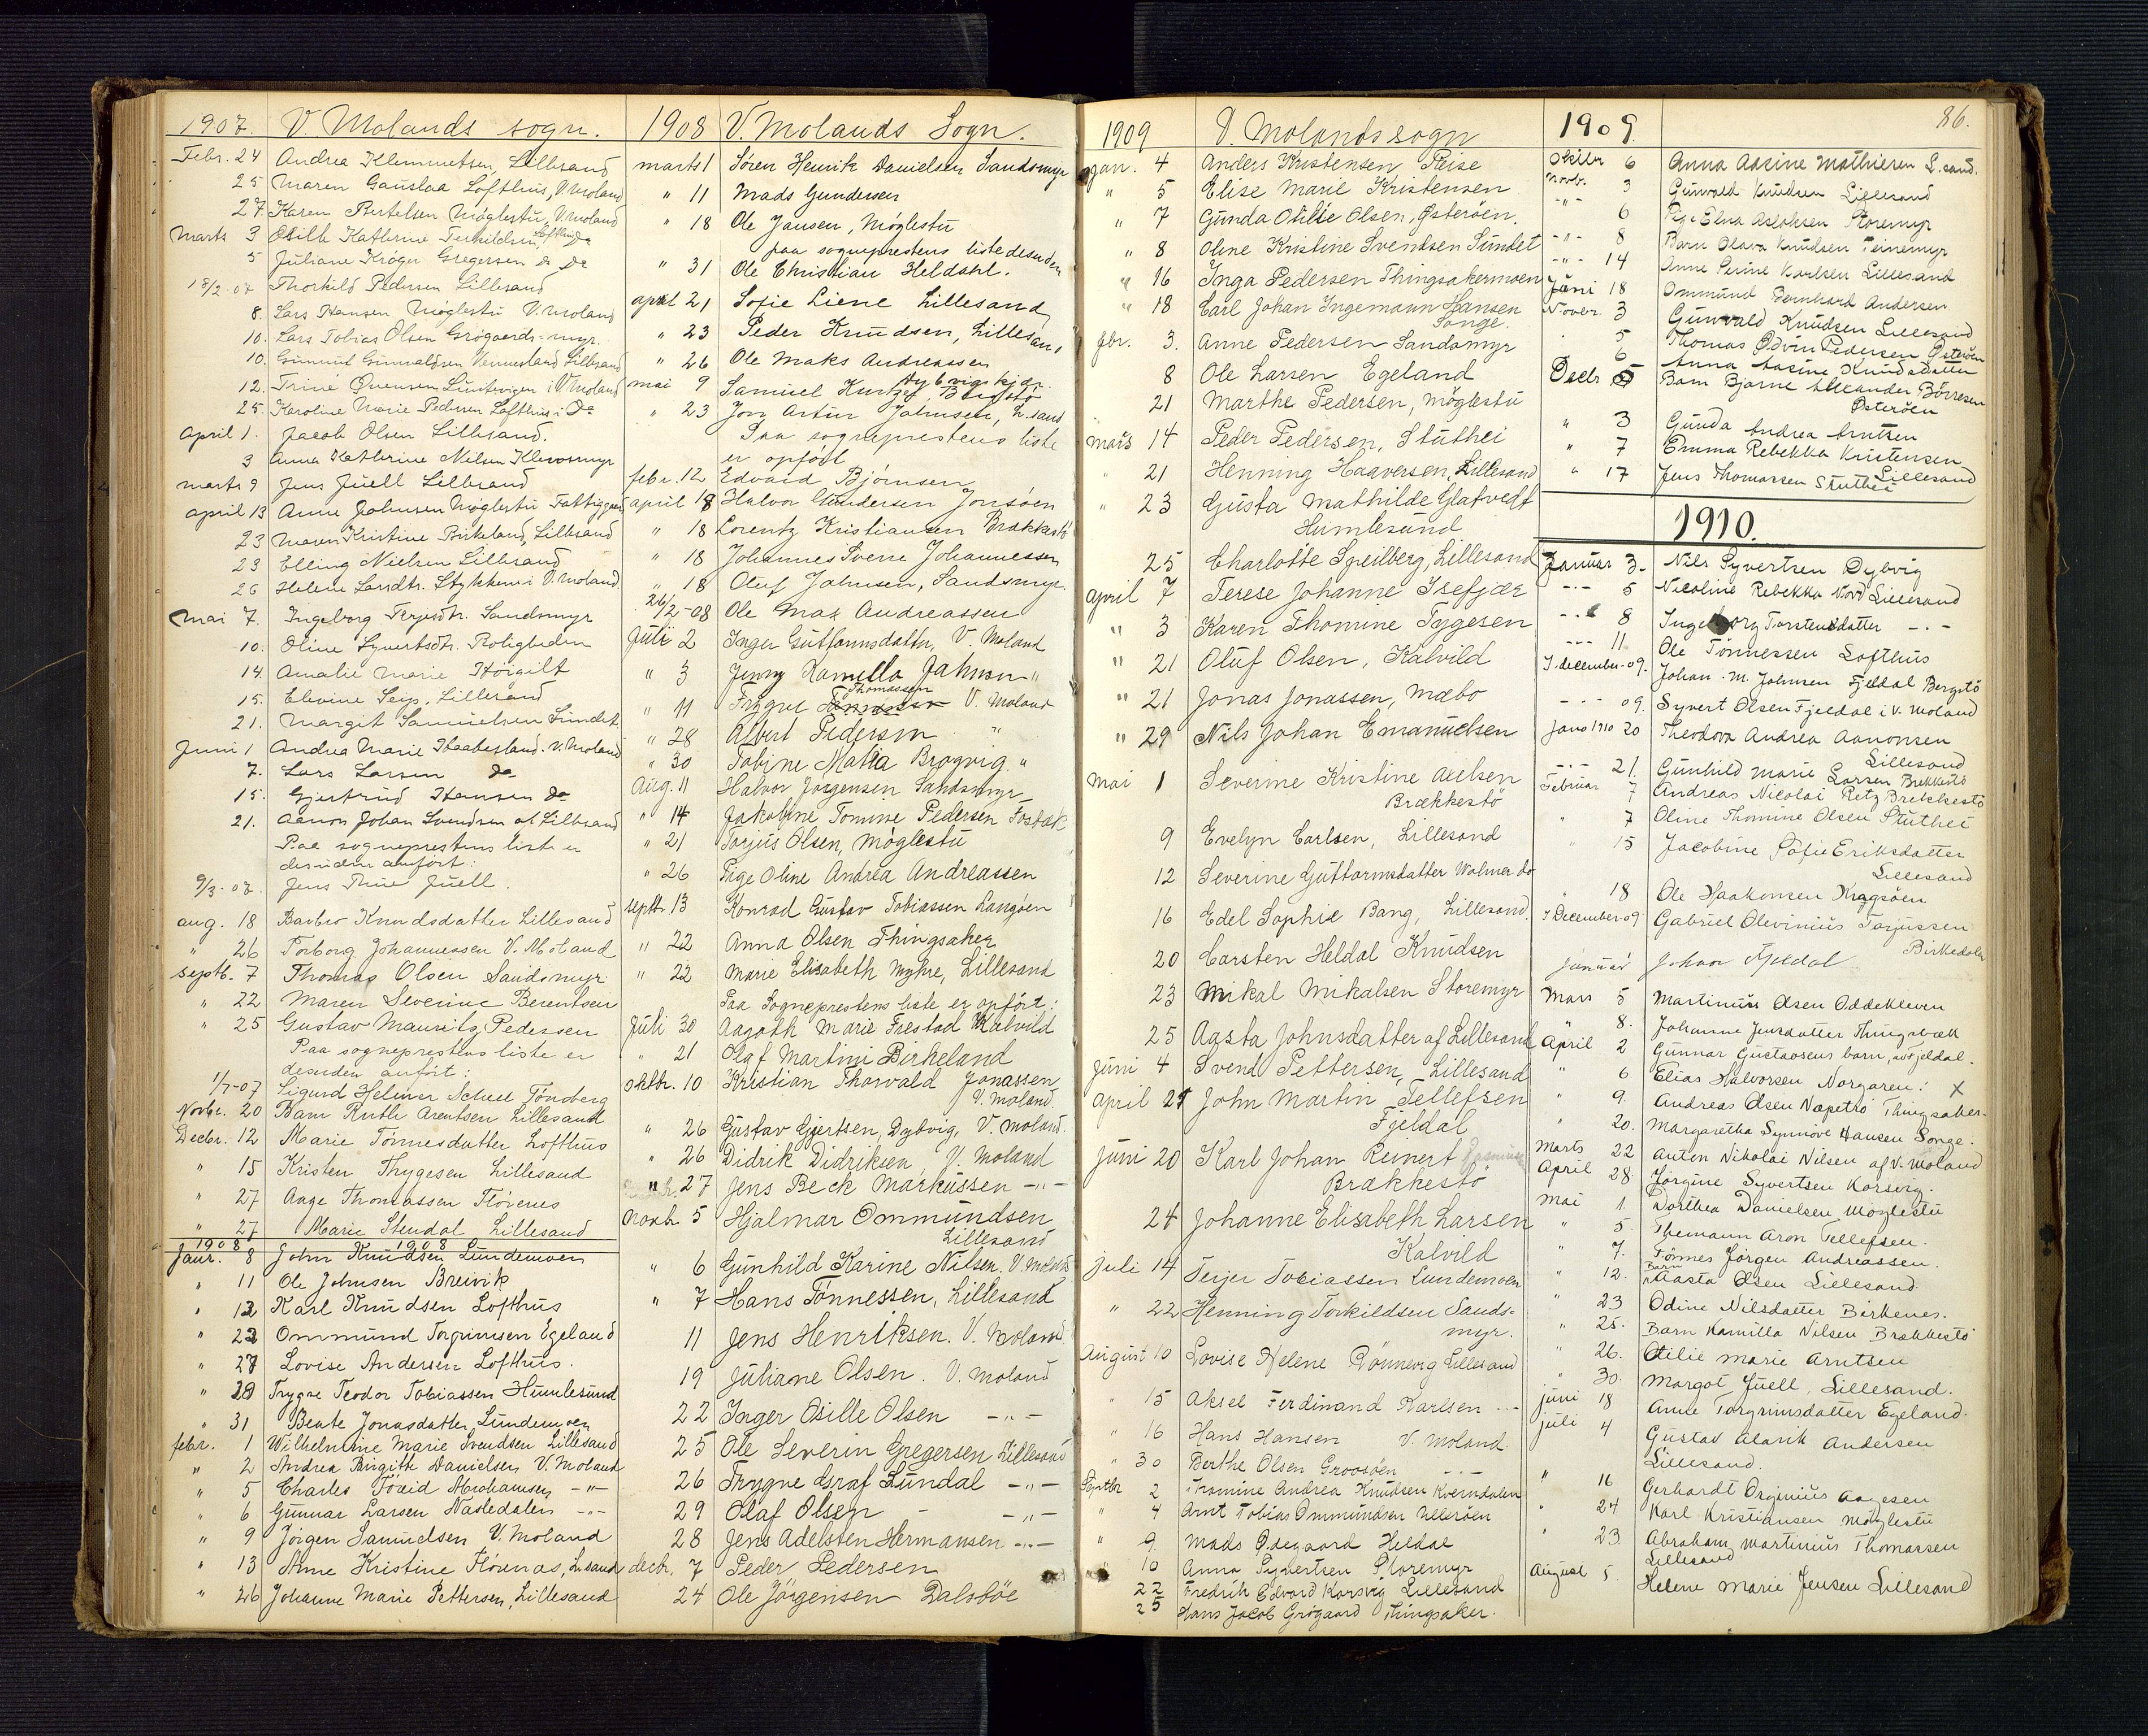 1907. V Molands sogn.
Febr. 24 Andrea Klemmetsen, Lillesand
25 Maren Gauslaa Lofthus, V. Moland
27. Karen Bertelsen Møglestu, V. moland
Marts 3 Otilie Kathrine Terkildsen, Lofthus do
5 Juliane Krøger Gregersen do do
18/2-07 Thorkild Pedersen Lillesand
8. Lars Hansen Møglestu V. moland
10. Lars Tobias Olsen Grøgaards-myr.
10. Gunnuf Gunvaldsen Vennesland Lillesand
12. Trine Evensen i V Moland
25. Karoline Marie Pedersen Lofthus i do
April 1. Jacob Olsen Lillesand.
3 Anna Kathrine Nilsen Klevosmyr
marts 9 Jens Juell Lillesand
april 13 Anne Johnsen Møglestu Fattiggaard
23 Maren Kristine Birkeland, Lillesand
23 Elling Nielsen Lillesand
26 Helene Larsdtr. Stykkene i V. moland.
Mai 7. Ingeborg Terjesdtr. Sandsmyr
10. Oline Syvertsdtr. Roligheden
14. Amalie Marie Hørgilt
15. Elevine Seip, Lillesand
21. Margit Samuelsen Sundet
Juni 1 Andrea Marie Haabesland. V. Moland
7. Lars Larsen do
15. Gjertrud Hansen do
21. Aanon Johan Svendsen af Lillesand
Paa sogneprestens liste er
desuden anført:
9/3-07. Jens Thue Juell.
aug. 18 Barbro Knudsdatter Lillesand
" 26 Torborg Johannessen V. Moland
septb. 7 Thomas Olsen Sandsmyr
" 22 Maren Severine Berentsen
" 25 Gustav Mauritz Pedersen
Paa sogneprestens liste er
desuden anført:
1/7-07 Sigurd Helmer Scheel Tønsberg
Novbr. 20 Barn Ruth Arentsen Lillesand
Decbr. 12 Marie Tønnesdatter Lofthus
" 15 Kristen Thygesen Lillesand
" 27 Aage Thomassen Flørenes
" 27 Marie Stendal Lillesand
1908 1908
Janr. 8 John Knudsen Lundemoen
" 11 Ole Johnsen Breivik
" 12 Karl Knudsen Lofthus
" 22 Ommund Torgrimsen Egeland
" 27 Lovise Andersen Lofthus.
" 29 Trygve Teodor Tobiassen Humlesund
" 31 Beate Jonasdatter, Lundemoen
febr. 1 Wilhelmine Marie Svendsen Lillesand
" 2 Andrea Birgitte Danielsen V. Moland
" 5 Charles Abrahamsen -"-
" 6 Gunnar Larsen Nasledalen -"-
" 9 Jørgen Samuelsen V. Moland
" 13 Anne Kristine Flørenæs, L. sand
" 26 Johanne Marie Pettersen, Lillesand
1908 V. Molands Sogn.
marts 1 Søren Henrik Danielsen Sandsmyr
" 11 Mads Gundersen
" 18 Ole Jansen, Møglestu
paa sogneprestens liste desuden
" 31 Ole Christian Heldahl.
april 21 Sofie Liene Lillesand
" 23 Peder Knudsen, Lillesand
" 26 Ole Maks Andreassen
mai 9 Samuel Bergstø
" 23 Jon Artur Johnsen, L. sand
Paa sogneprestens liste
er opført
febr. 12 Edvard Bjørnsen
april 18 Halvor Gundersen Jonsøen
" 18 Lorentz Kristiansen Brækkestø
" 18 Johannes Sverre Johannessen
" 18 Oluf Johnsen, Sandsmyr
26/2-08 Ole Max Andreassen
Juli 2 Inger Guttormsdatter, V. Moland
" 3 Jenny Kamilla Johnsen "
Thomassen
" 11 Trygve V. Moland
" 28 Albert Pedersen "
" 30 Tobine Matia Brogvig "
Aug. 11 Halvor Jørgensen Sandsmyr
" 14 Jakobine Tomine Pedersen Fosbæk
" 21 Torjus Olsen, Møglestu
" 26 Pige Oline Andrea Andreassen
septbr. 13 Konrad Gustav Tobiassen Langøen
" 22 Anna Olsen Thingsaker
" 22 Marie Elisabeth Myhre, Lillesand
Paa Sogneprestens liste er opført:
Juli 30 Aagoth Marie Frestad Kalvild
" 21 Olaf Martini Birkeland
oktbr. 10 Kristian Thorvald Jonassen
V. moland.
" 26 Gustav Gjertsen, Dybvig, V. moland.
" 26 Didrik Didriksen, V. Moland
" 27 Jens Beck Markussen -"-
Novbr. 5 Hjalmar Ommundsen
Lillesand
" 6 Gunhild Karine Nilsen. V. Moland
" 7 Hans Tønnessen, Lillesand
11 Jens Henriksen. V. Moland
19 Juliane Olsen. V. Moland
22 Inger Osille Olsen -"-
25 Ole Severin Gregersen Lillesand
26 Trygve Graf Lundal -"-
29 Olaf Olsen -"-
28 Jens Adelsten Hermansen -"-
decbr. 7 Peder Pedersen
24 Ole Jørgensen Dalsbøe
86.
1909 V. Molands sogn
Jan. 4 Anders Kristensen Reise
" 5 Elise Marie Kristensen
" 7 Gunda Otilie Olsen, Østerøen.
" 8 Oline Kristine Svendsen Sundet
" 16 Inga Pedersen Thingsakermoen
" 18 Carl Johan Ingemann Hansen
Songe.
febr. 3. Anne Pedersen Sandsmyr
8 Ole Larsen Egeland
21 Marthe Pedersen, Møglestu
mars 14 Peder Pedersen, Stuthei
" 21 Henning Haaversen, Lillesand
" 23 Gusta Mathilde Glatvedt
Humlesund
25 Charlotte Speilberg, Lillesand
april 7 Terese Johanne Isefjær
" 3 Karen Thomine Tygesen
" 21 Oluf Olsen, Kalvild
" 21 Jonas Jonassen, Mæbo
" 29 Nils Johan Emanuelsen
Mai 1 Severine Kristine Axelsen
Brækkestø
9 Evelyn Carlsen, Lillesand
12 Severine Guttormsdatter Wolmer do
16 Edel Sophie Bang, Lillesand
20 Carsten Heldal Knudsen
23 Mikal Mikalsen Storemyr
25 Aasta Johnsdatter af Lillesand
Juni 4 Svend Pettersen, Lillesand
april 25 John Martin Tellefsen
Fjeldal
Juni 20 Karl Johan Reinert
Brækkestø
24 Johanne Elisabeth Larsen
Kalvild
Juli 14 Terjer Tobiassen Lundemoen
" 22 Henning Torkildsen Sands-
myr.
August 10 Lovise Helene Rønnevig Lillesand
" 15 Aksel Ferdinand Karlsen -"-
" 16 Hans Hansen V. Moland
" 30 Berthe Olsen Groosøen -"-
Septbr 2 Tromine Andrea Knudsen Kverndalen
" 4 Arnt Tobias Ommundsen Ulleøen
" 9. Mads Ødegaard Heldal
" 10 Anna Syvertsen Storemyr
22 Fredrik Edvard Korsvig Lillesand
25 Hans Jacob Grøgaard Thingsaker.
1909
Oktbr 6 Anna Aasine Mathiesen L. sand.
Novb. 3 Gunvald Knudsen Lillesand
-"- 6 Pige Elna Aslaksen Storemyr
-"- 8 Barn Olava Knudsen Steinemyr
-"- 14 Anne Serine Karlsen Lillesand
Juni 18 Ommund Bernhard Andersen
Nover. 3 Gunvald Knudsen Lillesand
5 Thomas Edvin Pedersen Østerøen
6 Anna Aasine Knudsdatter
Decbr 5 Barn Bjarne Alexander Børresen
Østerøen
" 3 Gunda Andrea Arntsen
" 7 Emma Rebekka Kristensen
Lillesand
" 17 Jens Thomassen Stuthei
1910.
Januar 3. Nils Syvertsen Dybvig
-"- 5 Nicoline Rebekka Nord Lillesand
-"- 8 Ingeborg Torstensdatter -"-
-"- 11 Ole Tønnessen Lofthus
7 december-09. Johan M. Johnsen Fjeldal Bergstø
-"- 09. Syvert Olsen Fjeldal i V. Moland
Janr 1910 20 Theodora Andrea Aanonsen
Lillesand
-"- 21. Gunhild Marie Larsen Brekkestø
Februar 7 Andreas Nicolai Retz Brekkestø
" 7 Oline Thomine Olsen Stuthei
" 15 Jacobine Sofie Eriksdatter
Lillesand
" 18 Ole Haakonsen Kragsøen
7 December-09 Gabriel Olevinius Torjussen
Birkedalen
Januar Johan Fjeldal
Mars 5 Martinius Olsen Oddekleven
" 8. Johanne Jensdatter Thingsbæk
April 2 Gunnar Gustavsens barn, av Fjeldal.
" 6 Elias Halvorsen Norgaren: X
" 9. Andreas Olsen Næpetrø Thingsaker.
" 20. Margaretha Synnøve Hansen Songe.
Marts 22 Anten Nikolai Nilsen af V. Moland
April 28 Jørgine Syvertsen Korsvig.
Mai 1. Dorthea Danielsen Møglestu
" 5 Themann Aron Tellefsen.
" 7. Tønnes Jørgen Andreassen.
" 12. Barn Aasta Olsen Lillesand
" 23 Odine Nilsdatter Birkenes.
" 25. Barn Kamilla Nilsen Brækkestø
" 26. Otilie Marie Arntsen
" 30. Margot Juell, Lillesand.
juni 18 Anne Torgrimsdatter Egeland.
juli 4 Gustav Alarik Andersen
Lillesand.
" 16 Gerhardt Orginius Aagesen
" 24 Karl Kristiansen Møglestu
" 23 Abraham Martinius Thomassen
Lillesand
August 5. Helene Marie Jensen Lillesand